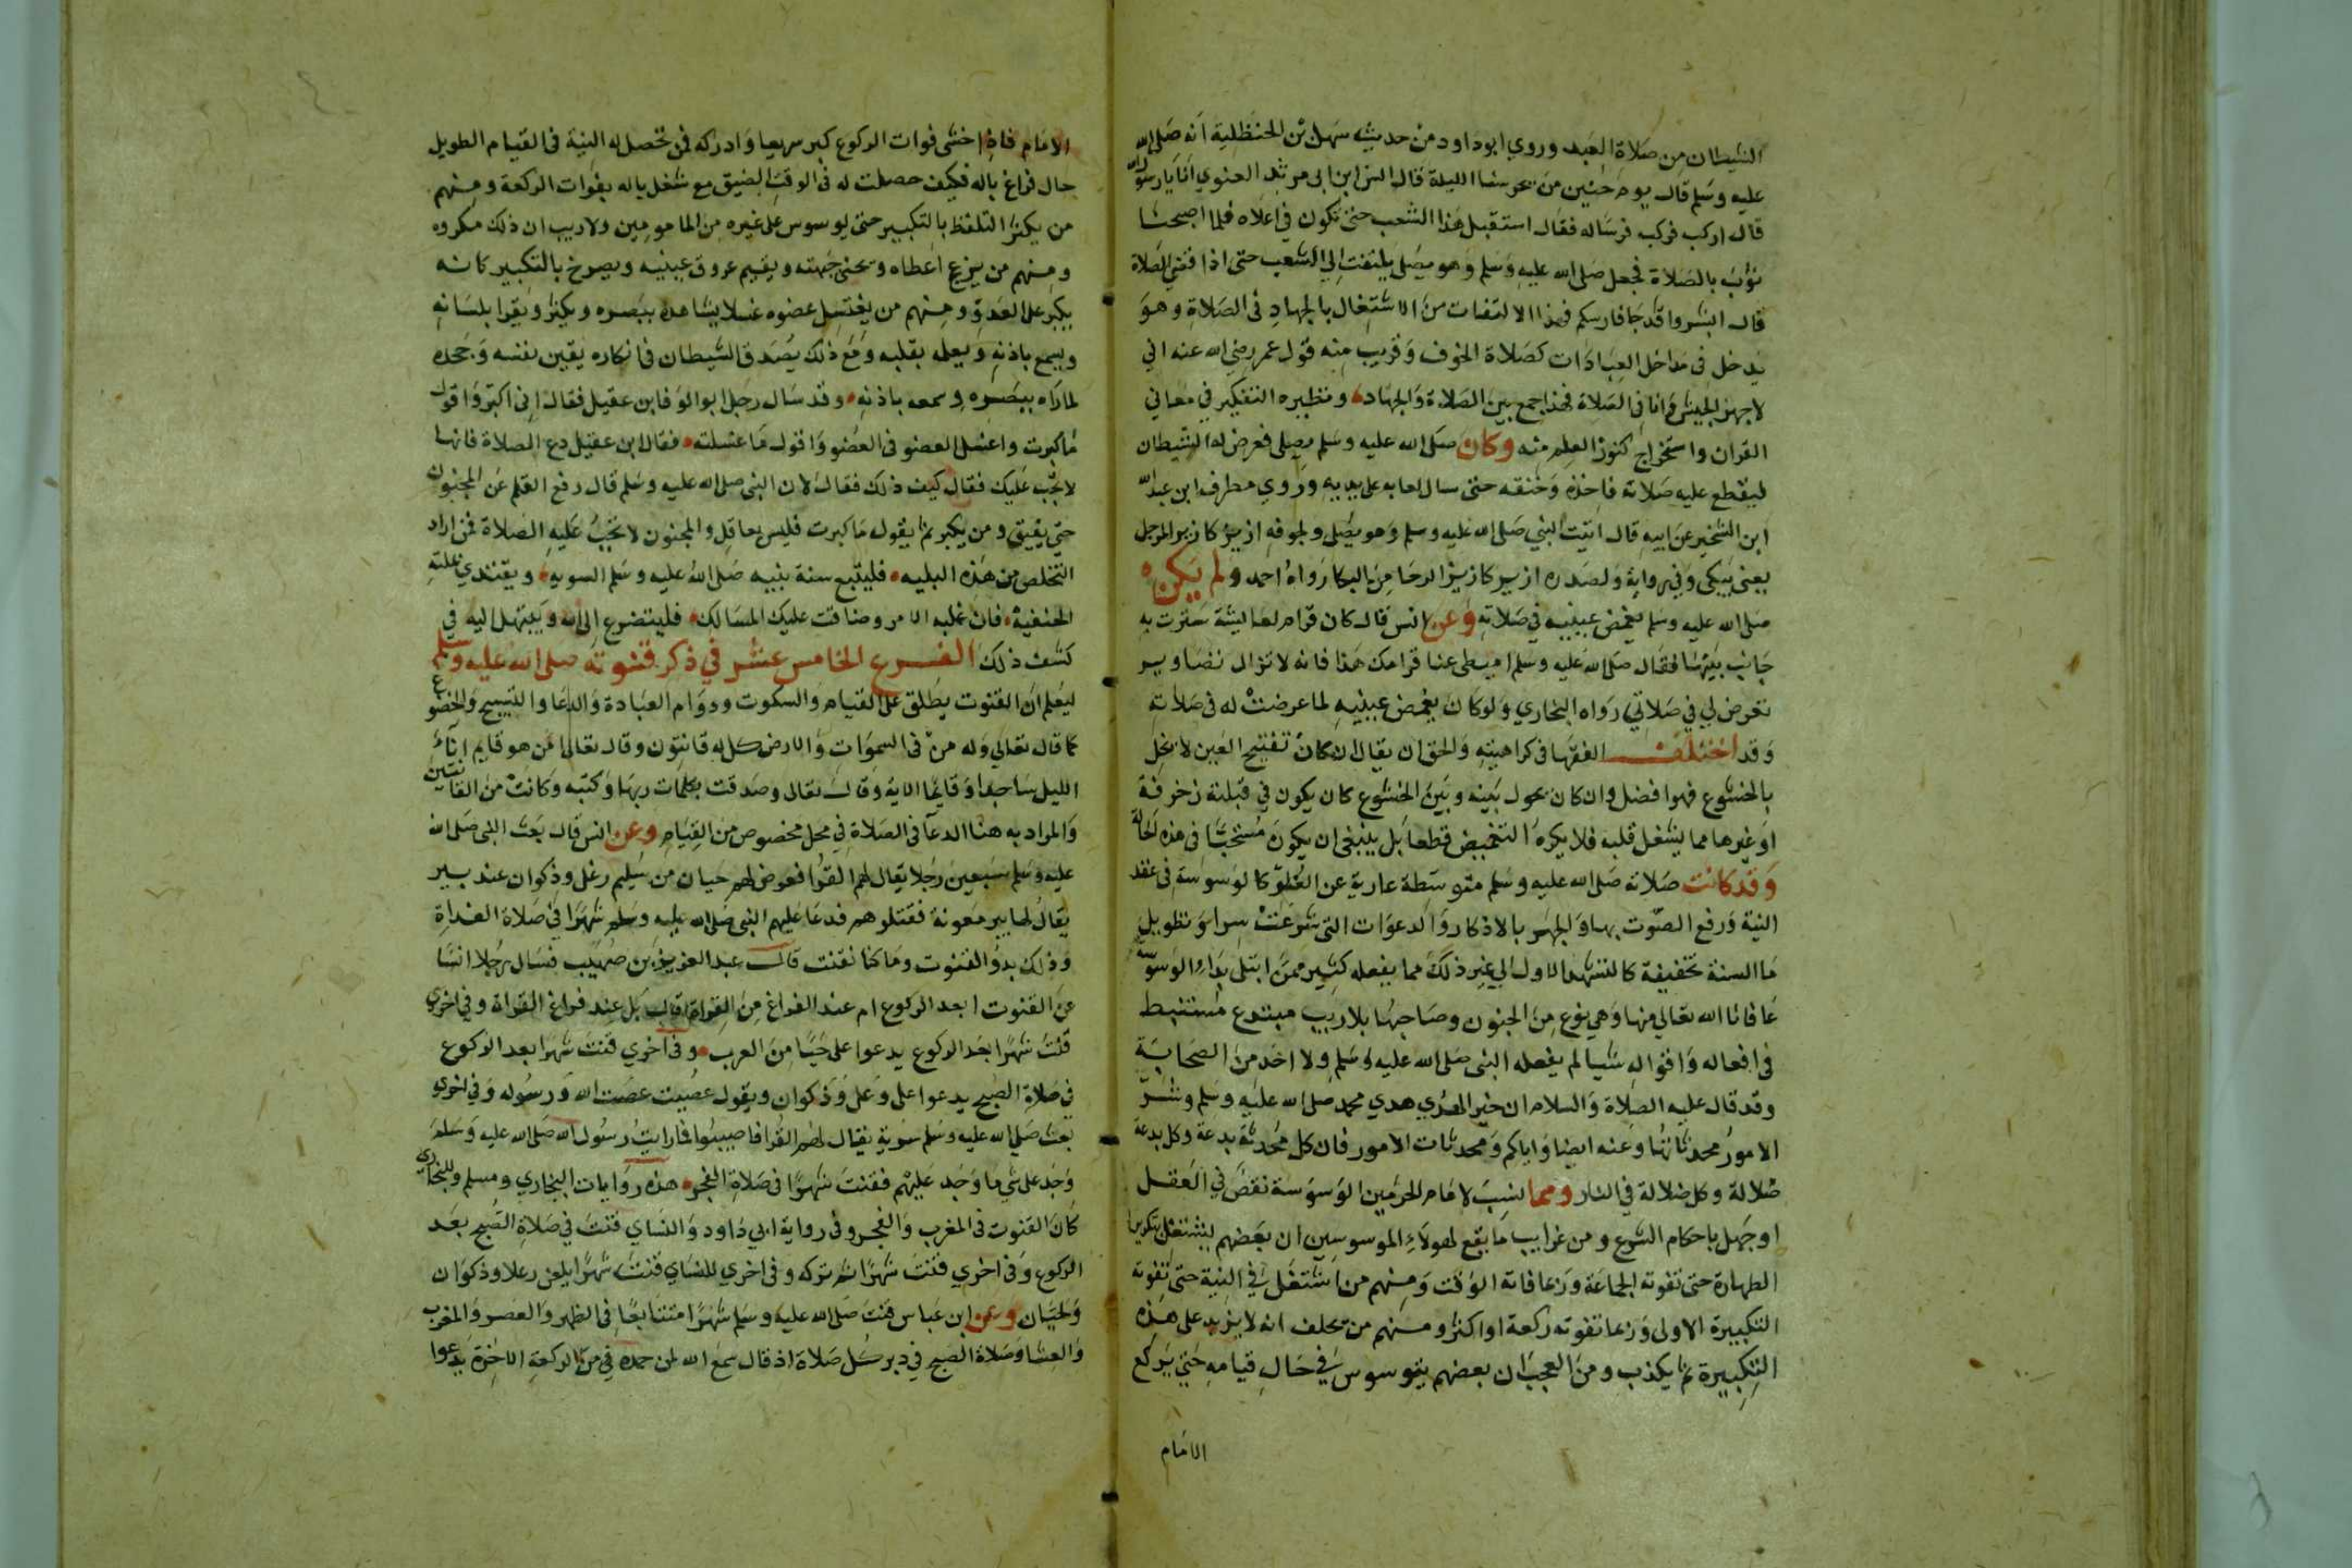 الشيطان من صلاة العبد وروي ابو داود من حديث سهل بن الحنظلية أنه صلى الله
عليه وسلم قال يوم حنين من يحرسنا الليلة قال انس ابن ابى مرثد الغنوي انا يا رسول الله
قال اركب فركب فرساله فقال استقبل هذا الشعب حتى تكون في اعلاه فلما اصبحنا
ثوب بالصلاة فجعل صلى الله عليه وسلم وهو يصلى يلتفت الي الشعب حتى اذا قضي الصلاة
قال ابشروا قد جا فارسكم فهذا الالتفات من الاشتغال بالجهاد في الصلاة وهو
يدخل في مداخل العبادات كصلاة الخوف وقريب منه قول عمر رضي الله عنه اني
لاجهز الجيش وانا في الصلاة فهذا جمع بين الصلاة والجهاد ونظيره التفكير في معاني
القران واستخراج كنوز العلم منه وكان صلى الله عليه وسلم يصلى فعرض له الشيطان
ليقطع عليه صلاته فاخذه وخنقه حتى سال لعابه على يديه وروي مطرف ابن عبد الله
ابن الشخير عن ابيه قال اتيت النبي صلى الله عليه وسلم وهو يصلى ولجوفه ازيز كازيز المرجل
يعنى يبكى وفي رواية ولصدره ازيز كازيز الرحا من البكا رواه احمد ولم يكن
صلى الله عليه وسلم يغمض عينيه في صلاته وعن انس قال كان قرام لعايشة سترت به
جانب بيتها فقال صلى الله عليه وسلم اميطى عنا قرامك هذا فانه لا تزال تصاوير
تعرض لي في صلاتي رواه البخاري ولو كان يغمض عينيه لما عرضت له في صلاته
وقد اختلف الفقها في كراهيته والحق ان يقال ان كان تفتيح العين لا يخل
بالخشوع فهو افضل وان كان يحول بينه وبين الخشوع كان يكون في قبلته زخرفة
او غيرها مما يشغل قلبه فلا يكره التغميض قطعا بل ينبغى ان يكون مستحبا في هذه الحالة
وقد كانت صلاته صلى الله عليه وسلم متوسطة عارية عن الغلو كالوسوسة في عقد
النية ورفع الصوت بها والجهر بالاذكار والدعوات التى شرعت سرا وتطويل
ما السنة تخفيفه كالتشهد الاول الي غير ذلك مما يفعله كثير ممن ابتلى بداء الوسوسة
عافانا الله تعالي منها وهي نوع من الجنون وصاحبها بلا ريب مبتدع مستنبط
في افعاله واقواله شيا لم يفعله النبى صلى الله عليه وسلم ولا احد من الصحابة
وقد قال عليه الصلاة والسلام ان خير الهدي هدي محمد صلى الله عليه وسلم وشر
الامور محدثاتها وعنه ايضا واياكم ومحدثات الامور فان كل محدثة بدعة وكل بدعة
ضلالة وكل ضلالة في النار ومما نسب لامام الحرمين الوسوسة نقص في العقل
او جهل باحكام الشرع ومن غرايب ما يقع لهولاء الموسوسين ان بعضهم يشتغل بتكرير
الطهارة حتى تفوته الجماعة وربما فاته الوقت ومنهم من اشتغل في النية حتى تفوته
التكبيرة الاولى وربما تفوته ركعة او اكثر ومنهم من يحلف انه لا يزيد على هذه
التكبيرة ثم يكذب ومن العجب ان بعضهم يتوسوس في حال قيامه حتي يركع
الامام
الامام فاذا خشى فوات الركوع كبر سريعا وادركه فمن لم تحصل له النية في القيام الطويل
حال فراغ باله فكيف حصلت له في الوقت الضيق مع شغل باله بفوات الركعة ومنهم
من يكثر التلفظ بالتكبير حتى يوسوس على غيره من المامومين ولا ريب ان ذلك مكروه
ومنهم من يزعج اعطاه ويحنى جبهته ويقيم عروق عينيه ويصرخ بالتكبير كانه
يكبر على العدو ومنهم من يغتسل عضوه غسلا يشاهده ببصره ويكبر ويقرا بلسانه
ويسمع باذنه ويعلمه بقلبه ومع ذلك يصدق الشيطان في انكاره يقين نفسه وجحده
لما راه ببصره وسمعه باذنه وقد سال رجل ابو الوفا بن عقيل فقال اني اكبر واقول
ما كبرت واغسل العضو في الوضوء واقول ما غسلته فقال ابن عقيل دع الصلاة فانها
لا تجب عليك فقال كيف ذلك فقال لان النبى صلى الله عليه وسلم قال رفع القلم عن المجنون
حتي يفيق ومن يكبر ثم يقول ما كبرت فليس بعاقل والمجنون لا تجب عليه الصلاة فمن اراد
التخلص من هذه البليه فليتبع سنة نبيه صلى الله عليه وسلم السويه ويقتدي بملته
الحنفية فان غلبه الامر وضاقت عليك المسالك فليتضرع الى الله ويبتهل اليه في
كشف ذلك الفرع الخامس عشر في ذكر قنوته صلى الله عليه وسلم
ليعلم ان القنوت يطلق على القيام والسكوت ودوام العبادة والدعا والتسبيح والخضوع
كما قال تعالي وله من في السموات والارض كل له قانتون وقال تعالى امن هو قايم اناء
الليل ساجدا وقايما الاية وقال تعالى وصدقت بكلمات ربها وكتبه وكانت من القانتين
والمراد به هنا الدعا في الصلاة في محل مخصوص من القيام وعن انس قال بعث النبى صلى الله
عليه وسلم سبعين رجلا يقال لهم القرا فعرض لهم حيان من سليم رعل وذكوان عند بير
يقال لها بير معونة فقتلوهم فدعا عليهم النبى صلى الله عليه وسلم شهرا في صلاة الغداة
وذلك بدو القنوت وما كنا نقنت قال عبد العزيز بن صهيب فسال رجلا انسا
عن القنوت ابعد الركوع ام عند الفراغ من القراة قال بل عند فراغ القراة وفي اخري
قنت شهرا بعد الركوع يدعوا على حيا من العرب وفي اخري قنت شهرا بعد الركوع
في صلاة الصبح يدعوا على رعل وذكوان ويقول عصية عصت الله ورسوله وفي اخري
بعث صلى الله عليه وسلم سرية يقال لهم القرا فاصيبوا فما رايت رسول الله صلى الله عليه وسلم
وجد على شي ما وجد عليهم فقنت شهرا في صلاة الفجر هذه روايات البخاري ومسلم وللبخاري
كان القنوت في المغرب والفجر وفي رواية ابي داود والنساي قنت في صلاة الصبح بعد
الركوع وفي اخري قنت شهرا ثم تركه وفي اخري للنساي قنت شهرا يلعن رعلا وذكوان
ولحيان وعن ابن عباس قنت صلى الله عليه وسلم شهرا متتابعا في الظهر والعصر والمغرب
والعشا وصلاة الصبح في دبر كل صلاة اذ قال سمع الله لمن حمده في من الركعة الاخرة يدعوا